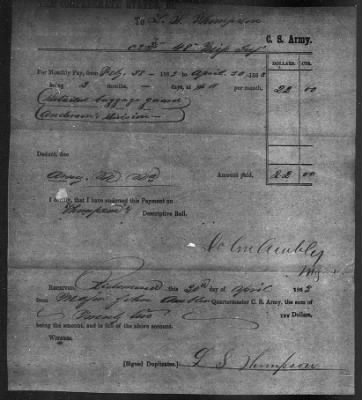 To L. S. Thompson
48 Miss Regt C. S. Army.
DOLLARS. CTS.
For Monthly Pay, from Feb. 28 186 to April 30 186
being 2 months, — days, at $11 per month. 22 00
Detailed baggage guard
Anderson's Division
Deduct, due
Amount paid. 22 00
I certify, that I have endorsed this Payment on
Thompson's Descriptive Roll.
Received, Richmond this 30th day of April 186
from Major John Quartermaster C. S. Army, the sum of
Twenty two Dollars,
being the amount, and in full of the above account.
Witness.
[Signed Duplicates.] L S Thompson